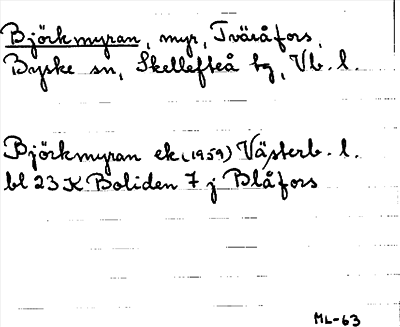 Björkmyran, myr, Tväråfors,
Byske sn, Skellefteå tg, Vb. l.
Björkmyran ek. (1959) Västerb. l.
bl 23 K Boliden 7 j Blåfors
ML-63